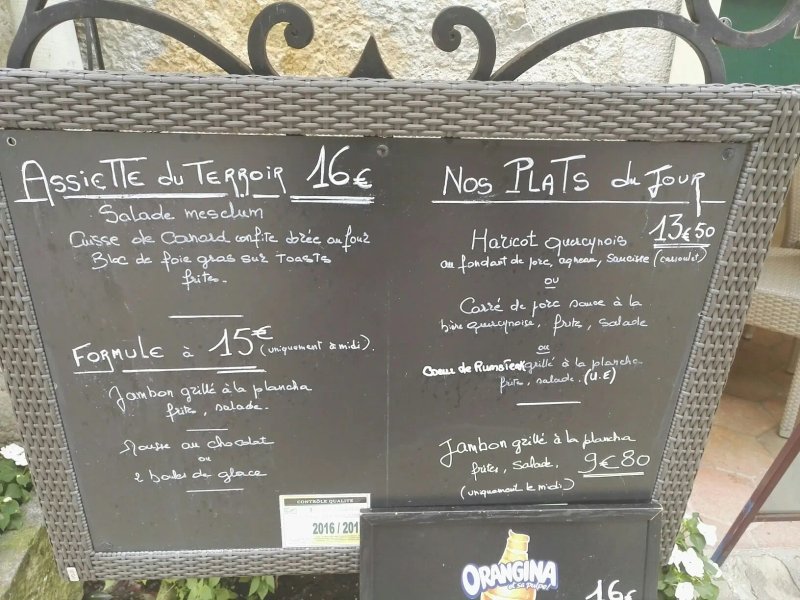 ASSIETTE du TERROIR 16€
Salade mesclum
Cuisse de Canard confite dorée au four
Bloc de foie gras sur Toasts
frites.
FORMULE à 15€ (uniquement à midi).
Jambon grillé à la plancha
frites, salade.
Mousse au chocolat
ou
2 boules de glace
NOS PLATS du JOUR
Haricot quercynois 13€50
au fondant de porc, agneau, saucisse (cassoulet)
ou
Carré de porc sauce à la
bière quercynoise, frites, salade
ou
Coeur de Rumsteak grillé à la plancha
frites, salade. (U.E)
Jambon grillé à la plancha
frites, salade. 9€80
(uniquement le midi)
CONTRÔLE QUALITÉ
2016/201
ORANGINA
et sa pulpe!
16€